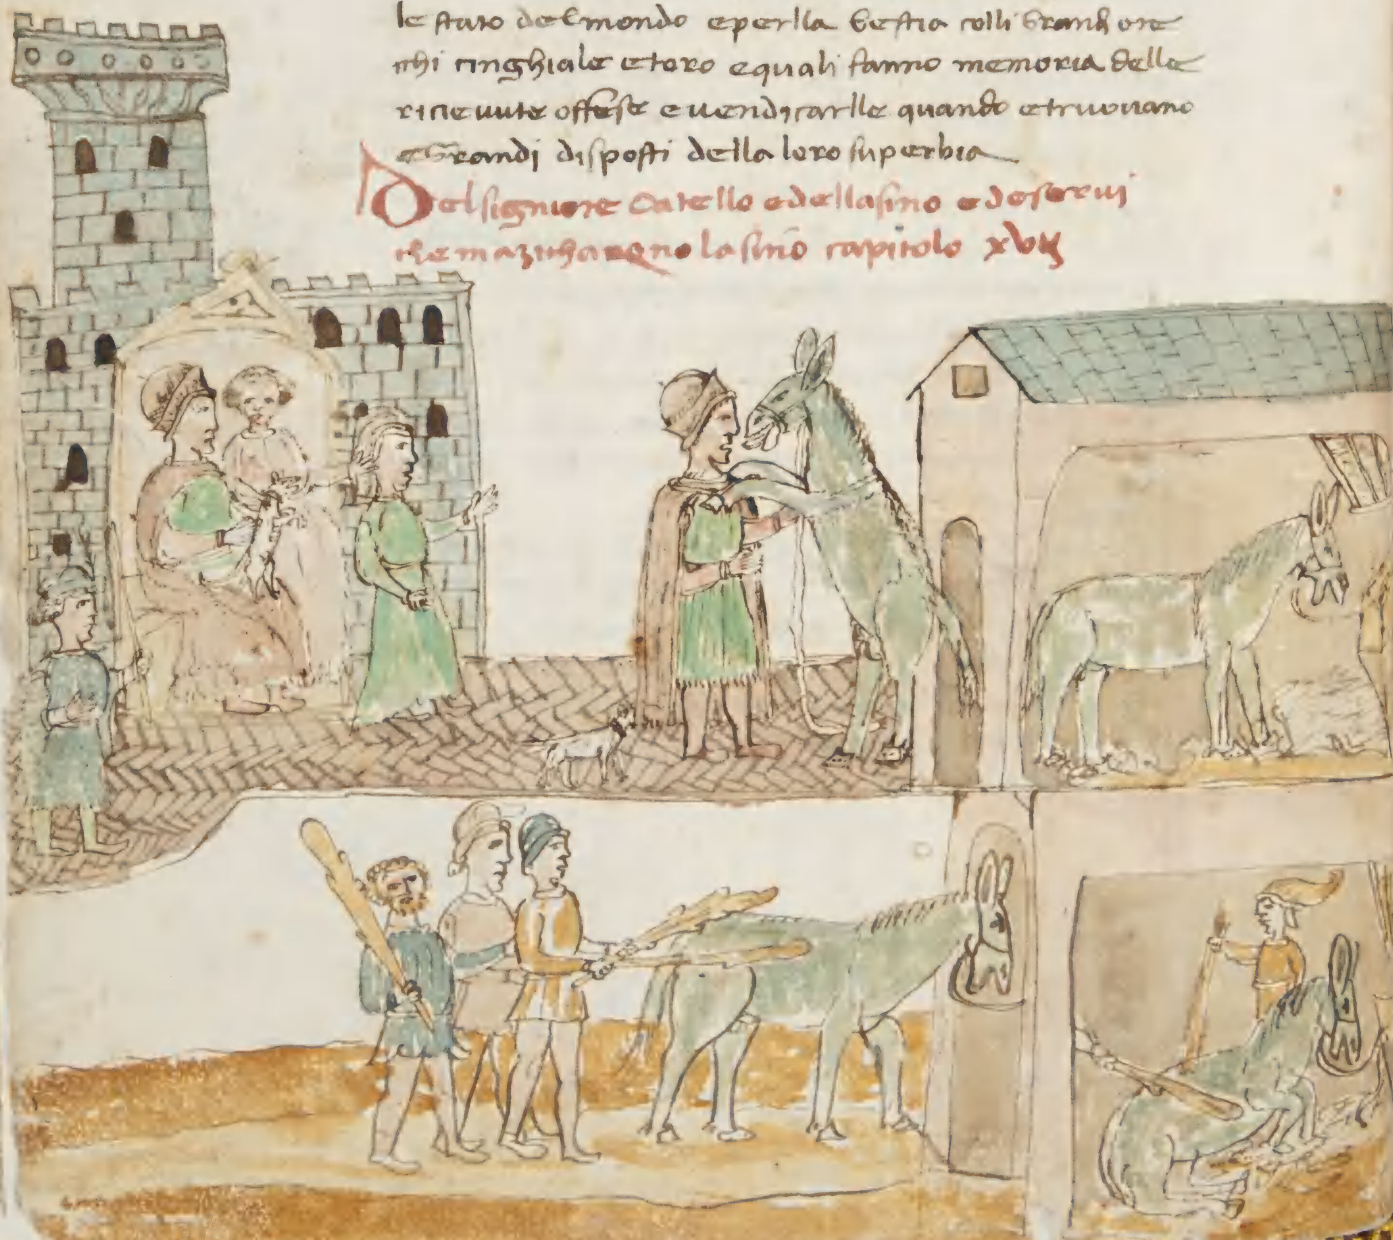 le stato del mondo e perlla bestia colli grandi ore
chi cinghiale e toro e quali fanno memoria delle
ricievute offese e vendicarlle quando e truovano
e grandi disposti della loro superbia
Del signiore catello e dellasino e de servi
che mazicharono lasino capitolo